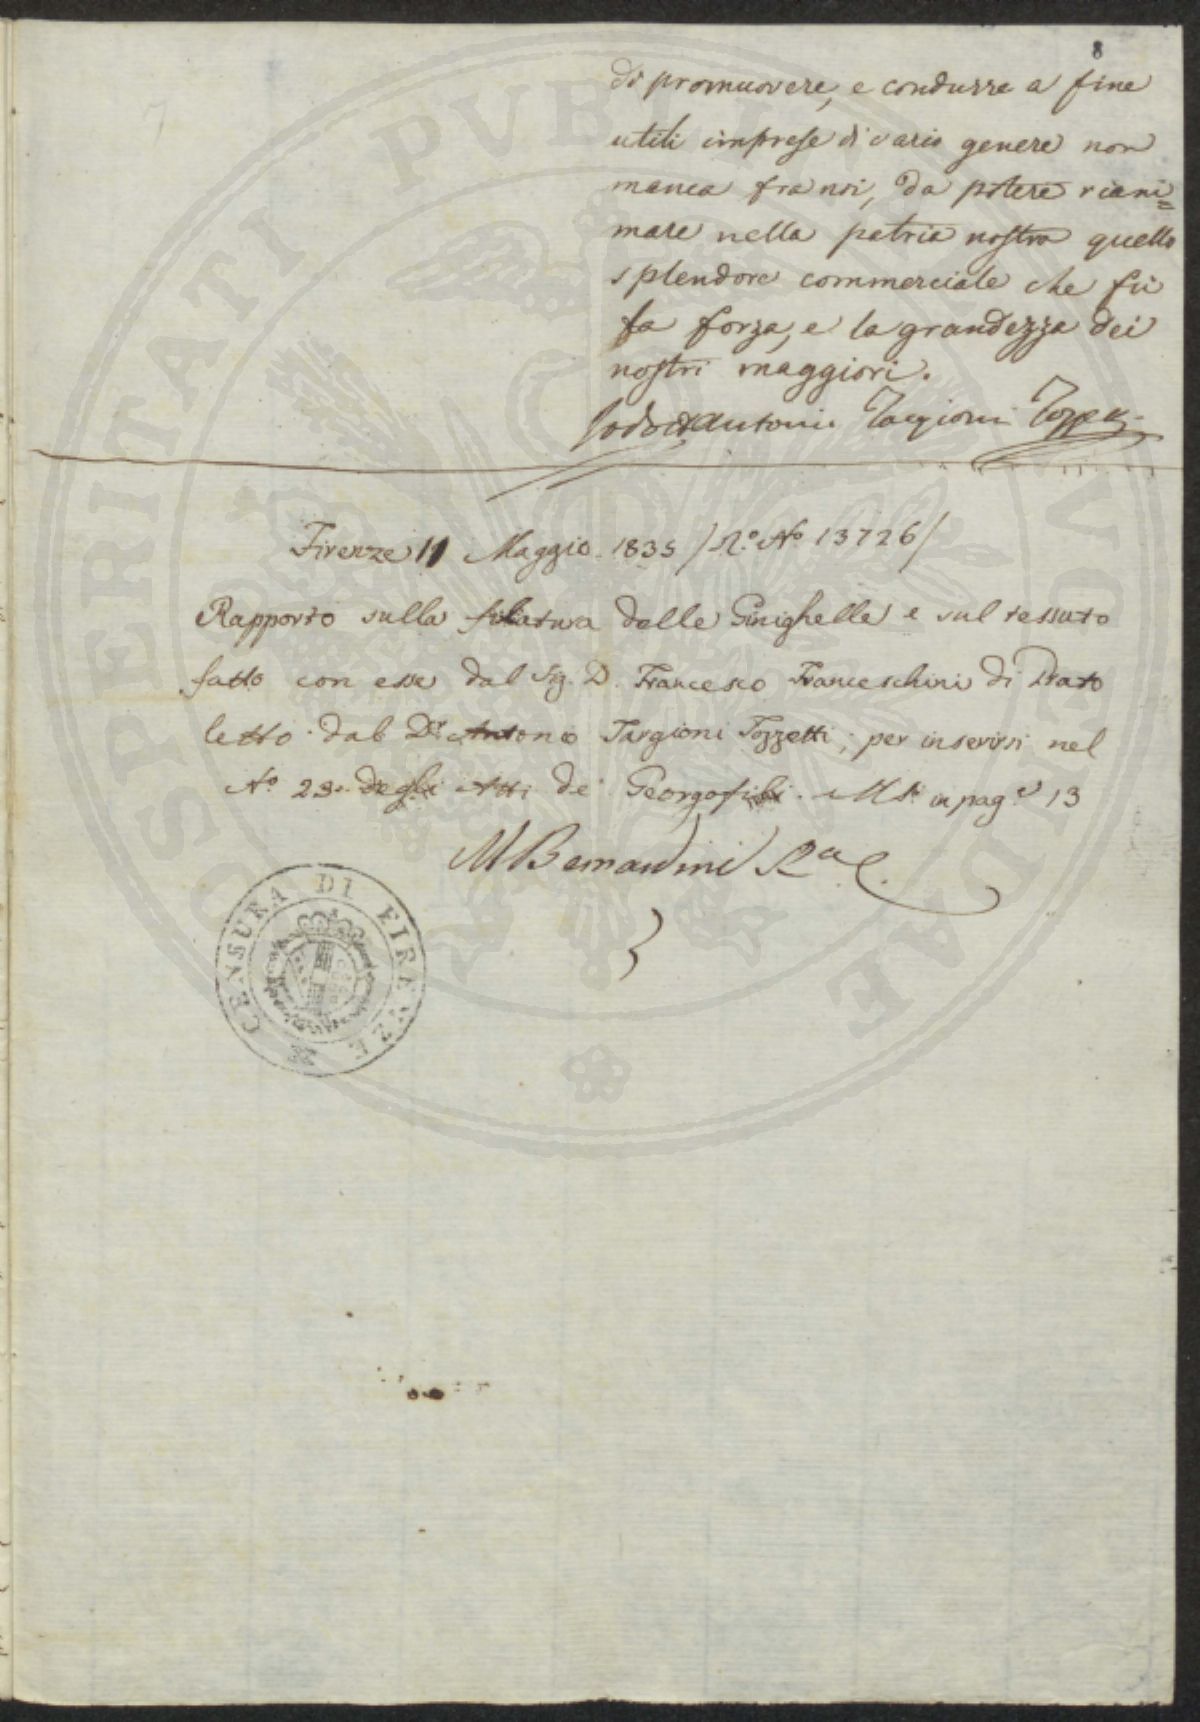 8
di promuovere, e condurre a fine
utili imprese di vario genere non
manca fra noi, da potere riani=
mare nella patria nostra quello
splendore commerciale che fù
la forza, e la grandezza dei
nostri maggiori.
Antonio Targioni Tozzetti
Firenze 11 Maggio 1835 / R.º Nº 13726 /
Rapporto sulla filatura delle Sinighelle e sul tessuto
fatto con esse dal Sig. D. Francesco Franceschini di Prato
letto dal Dr Antonio Targioni Tozzetti; per inserirsi nel
Nº 23. degli Atti de Georgofili. MS. in pag.e 13
M Bernardini
CENSURA DI FIRENZE
PROSPERITATI PUBLICAE